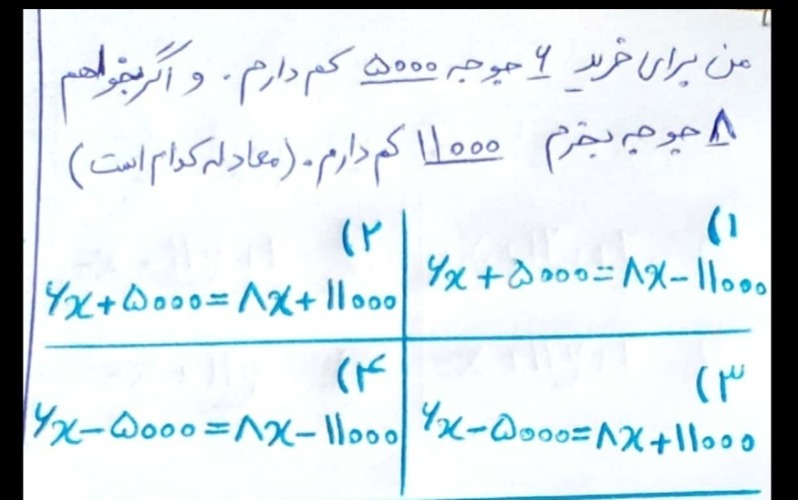 من برای خرید ۶ جوجه ۵۰۰۰ کم دارم. و اگر بخواهم
۸ جوجه بخرم ۱۱۰۰۰ کم دارم. (معادله کدام است)
۱)
۶x + ۵۰۰۰ = ۸x - ۱۱۰۰۰
۲)
۶x + ۵۰۰۰ = ۸x + ۱۱۰۰۰
۳)
۶x - ۵۰۰۰ = ۸x + ۱۱۰۰۰
۴)
۶x - ۵۰۰۰ = ۸x - ۱۱۰۰۰